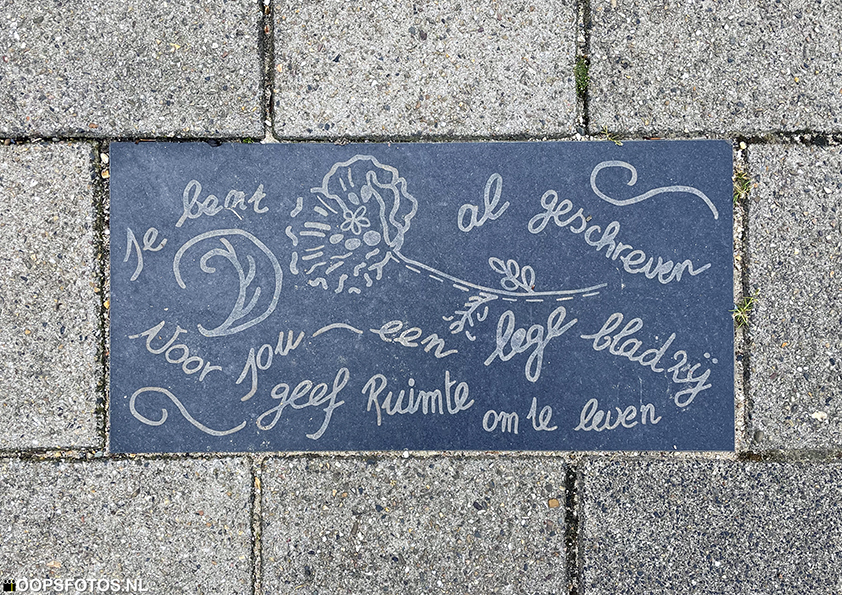 Je bent al geschreven
Voor jou - een lege bladzij
geef Ruimte om te leven
OOPSFOTOS.NL